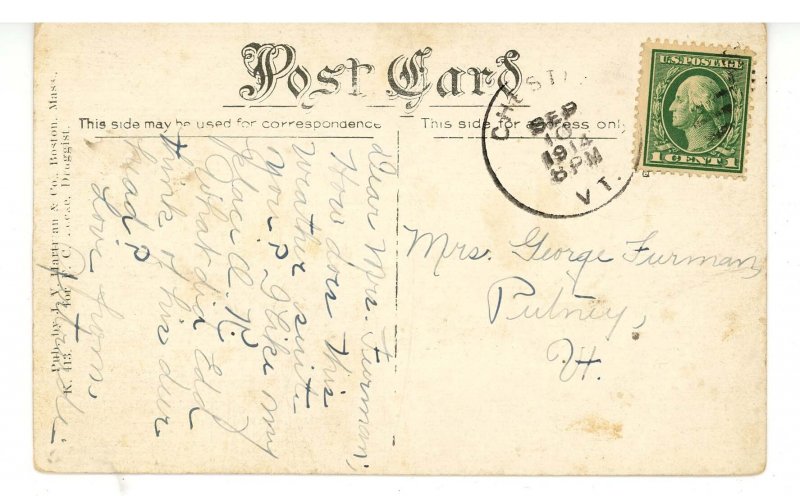 Post Card
This side may be used for correspondence
This side for address only
Pub. by J. V. Hartman & Co., Boston, Mass.
for F. C. Druggist.
K. 413.
CHEST
SEP
10
1914
8 PM
VT.
U.S. POSTAGE
1 CENT 1
Mrs. George Furman,
Putney,
Vt.
Dear Mrs. Furman;
How does this
weather suit
you? I like my
place O.K.
what did Edd
think of his deer
head?
Love from